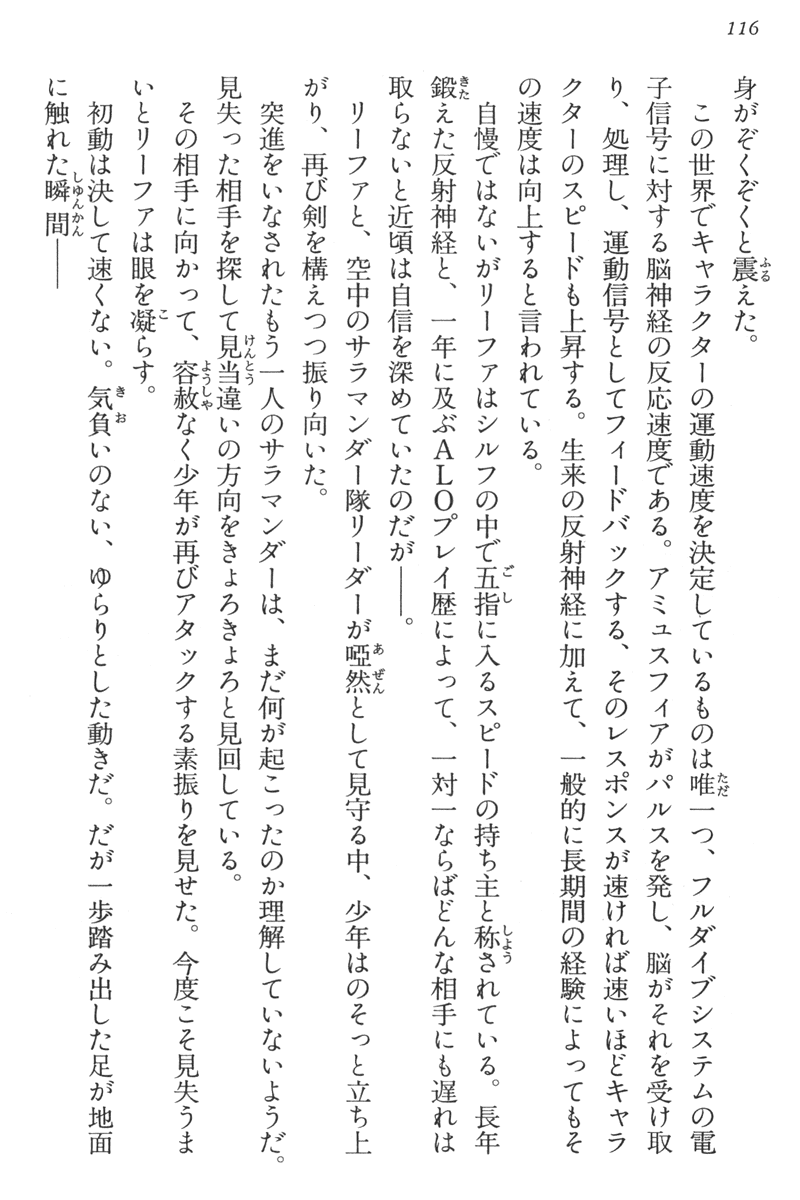 116
身がぞくぞくと震えた。
この世界でキャラクターの運動速度を決定しているものは唯一つ、フルダイブシステムの電
子信号に対する脳神経の反応速度である。アミュスフィアがパルスを発し、脳がそれを受け取
り、処理し、運動信号としてフィードバックする、そのレスポンスが速ければ速いほどキャラ
クターのスピードも上昇する。生来の反射神経に加えて、一般的に長期間の経験によってもそ
の速度は向上すると言われている。
自慢ではないがリーファはシルフの中で五指に入るスピードの持ち主と称されている。長年
鍛えた反射神経と、一年に及ぶALOプレイ歴によって、一対一ならばどんな相手にも遅れは
取らないと近頃は自信を深めていたのだが――。
リーファと、空中のサラマンダー隊リーダーが啞然として見守る中、少年はのそっと立ち上
がり、再び剣を構えつつ振り向いた。
突進をいなされたもう一人のサラマンダーは、まだ何が起こったのか理解していないようだ。
見失った相手を探して見当違いの方向をきょろきょろと見回している。
その相手に向かって、容赦なく少年が再びアタックする素振りを見せた。今度こそ見失うま
いとリーファは眼を凝らす。
初動は決して速くない。気負いのない、ゆらりとした動きだ。だが一歩踏み出した足が地面
に触れた瞬間――